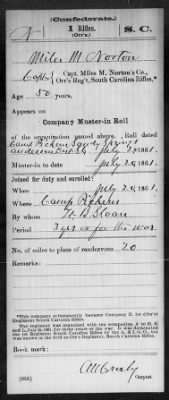 (Confederate.)
N 1 Rifles. S. C.
(Orr's.)
Miles M. Norton
Capt., Capt. Miles M. Norton's Co.,
Orr's Reg't, South Carolina Rifles.*
Age 50 years.
Appears on
Company Muster-in Roll
of the organization named above. Roll dated
Camp Pickens Sandy Springs
Anderson Dist S.C. July 20, 1861.
Muster-in to date July 20, 1861.
Joined for duty and enrolled:
When July 20, 1861.
Where Camp Pickens
By whom J. B. Sloan
Period 3 yrs or for the war
No. of miles to place of rendezvous 20
Remarks:
*This company subsequently became Company E, 1st (Orr's)
Regiment South Carolina Rifles.
Book mark:
(656)
Copyist.